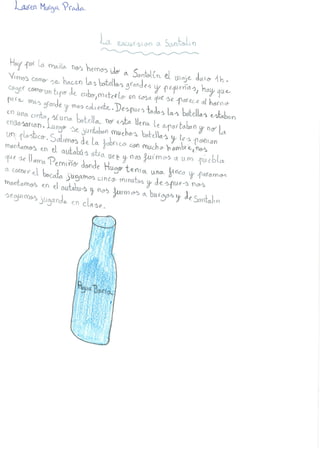 Laren Muga Prada.
La excursion a Santolin
Hoy por la maña nos hemos ido a Santolín el viaje duro 1h.
Vimos como se hacen las botellas grandes y pequeñas, hay que
coger como un tipo de cubo, meterlo en cosa que se parece al horno
pero mas grande y mas caliente. Despues todas las botellas estaban
en una cinta, si una botella no esta llena la apartaban y no la
endosarian. Luego se juntaban muchas botellas y les ponian
un plastico. Salimos de la fabrica con mucha hambre, nos
montamos en el autobús otra vez y nos fuimos a un pueblo
que se llama Permiño donde Hugo tenia una finca y paramos
a comer el bocata jugamos cinco minutos y despues nos
montamos en el autobús y nos fuimos a burgos y de Santolin
seguimos jugando en clase.
Agua Doria